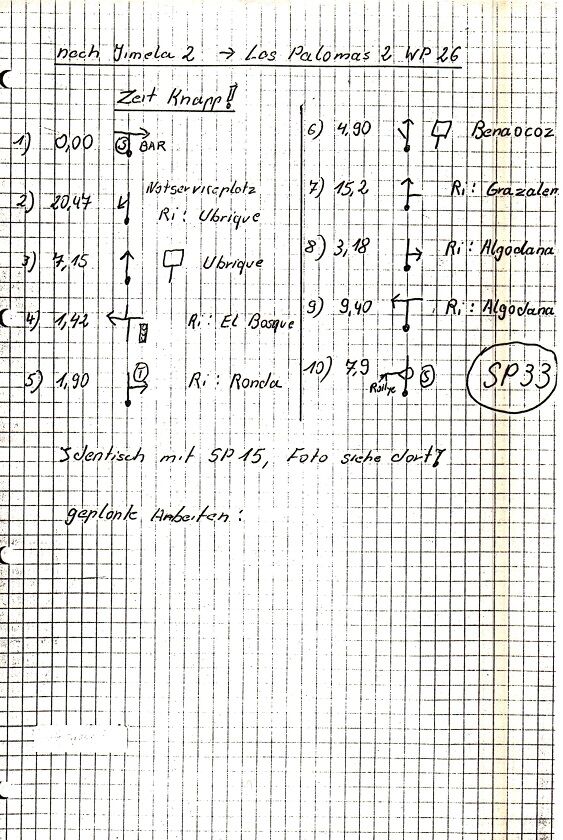 nach Jimela 2 → Los Palomas 2 WP 26
Zeit Knapp!!
1) 0,00 S BAR
2) 20,47 Notserviceplatz
Ri: Ubrique
3) 7,15 Ubrique
4) 1,42 Ri: El Bosque
5) 1,90 T Ri: Ronda
6) 4,90 Benaocoz
7) 15,2 Ri: Grazalem
8) 3,18 Ri: Algodana
9) 9,40 Ri: Algodana
10) 7,9 Rallye S
SP33
Identisch mit SP 15, Foto siehe dort!
geplante Arbeiten: